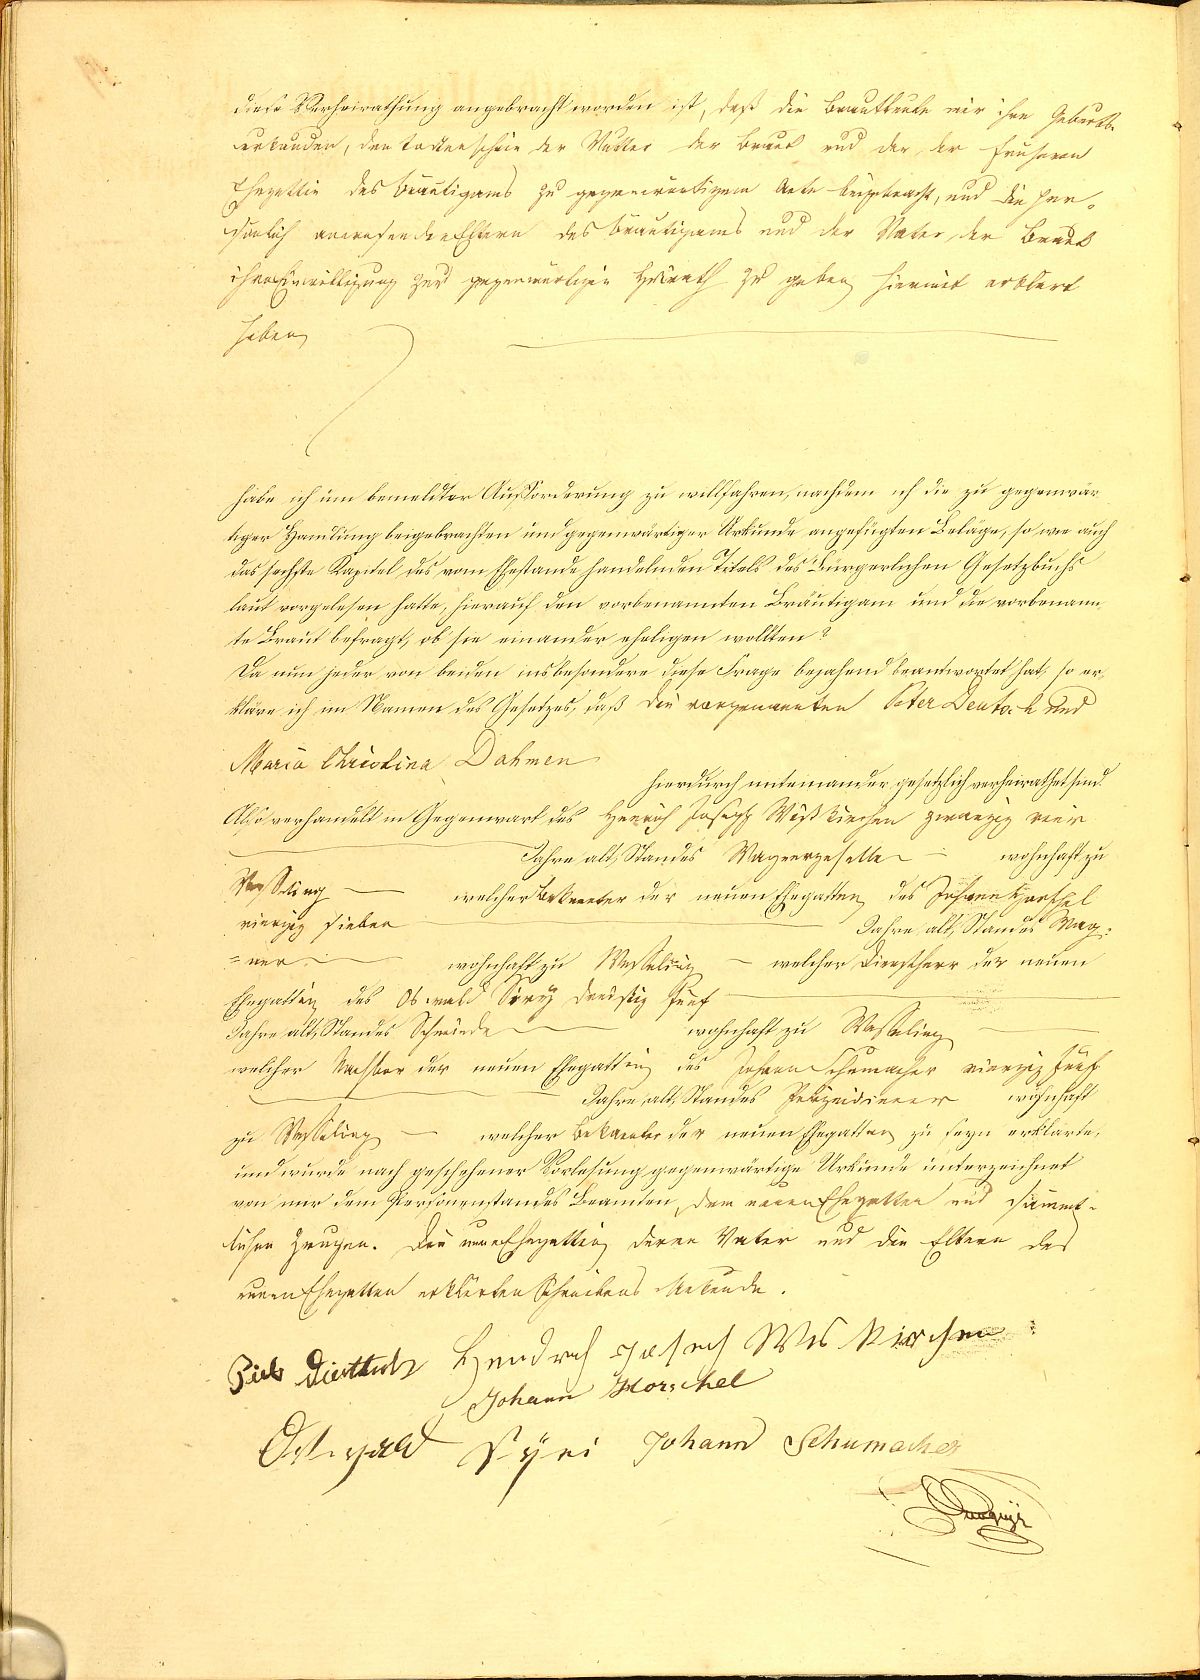 diese Verheirathung angebracht worden ist, daß die Brautleute mir ihre Geburts-
urkunden, den Todtenschein der Mutter der Braut und der der frühern
Ehegattin des Bräutigams zu gegenwärtigem Acte beigebracht, und die per-
sönlich anwesenden Eltern des Bräutigams und der Vater der Braut
ihre Einwilligung zur gegenwärtigen Heirath zu geben hiermit erklärt
haben
habe ich um bemeldter Aufforderung zu willfahren, nachdem ich die zu gegenwär
tiger Handlung beigebrachten und gegenwärtiger Urkunde angefügten Beläge, so wie auch
das sechste Kapitel des vom Ehestande handelnden Titels des Bürgerlichen Gesetzbuchs
laut vorgelesen hatte, hierauf den vorbenannten Bräutigam und die vorbenann
te Braut befragt, ob sie einander eheligen wollten?
Da nun jeder von beiden insbesondere diese Frage bejahend beantwortet hat, so er
kläre ich im Namen des Gesetzes, daß die vorgenannten Peter Deutsch und
Maria Christina Dahmen
hierdurch miteinander gesetzlich verheirathet sind.
Also verhandelt in Gegenwart des Henrich Joseph Wißkirchen zwanzig vier
Jahre alt, Standes Wagnergeselle wohnhaft zu
Wesseling welcher Bekannter der neuen Ehegatten, des Johann Horschel
vierzig sieben Jahre alt, Standes Wag-
=ner wohnhaft zu Wesseling welcher Dienstherr der neuen
Ehegattin des Oswald Syry dreißig fünf
Jahre alt, Standes Schmiede wohnhaft zu Wesseling
welcher Nachbar der neuen Ehegattin, des Johann Schumacher vierzig fünf
Jahre alt, Standes Polizeidiener wohnhaft
zu Wesseling welcher Bekannter der neuen Ehegatten zu seyn erklärte,
und wurde nach geschehener Vorlesung gegenwärtige Urkunde unterzeichnet
von mir dem Personenstandes Beamten, dem neuen Ehegatten und sämmt-
lichen Zeugen. Die neue Ehegattin, deren Vater und die Eltern des
neuen Ehegatten erklärten Schreibens Unkunde.
Hendrich Joseph Wis Kirchen
Johann Horschel
Oswald Syri Johann Schumacher